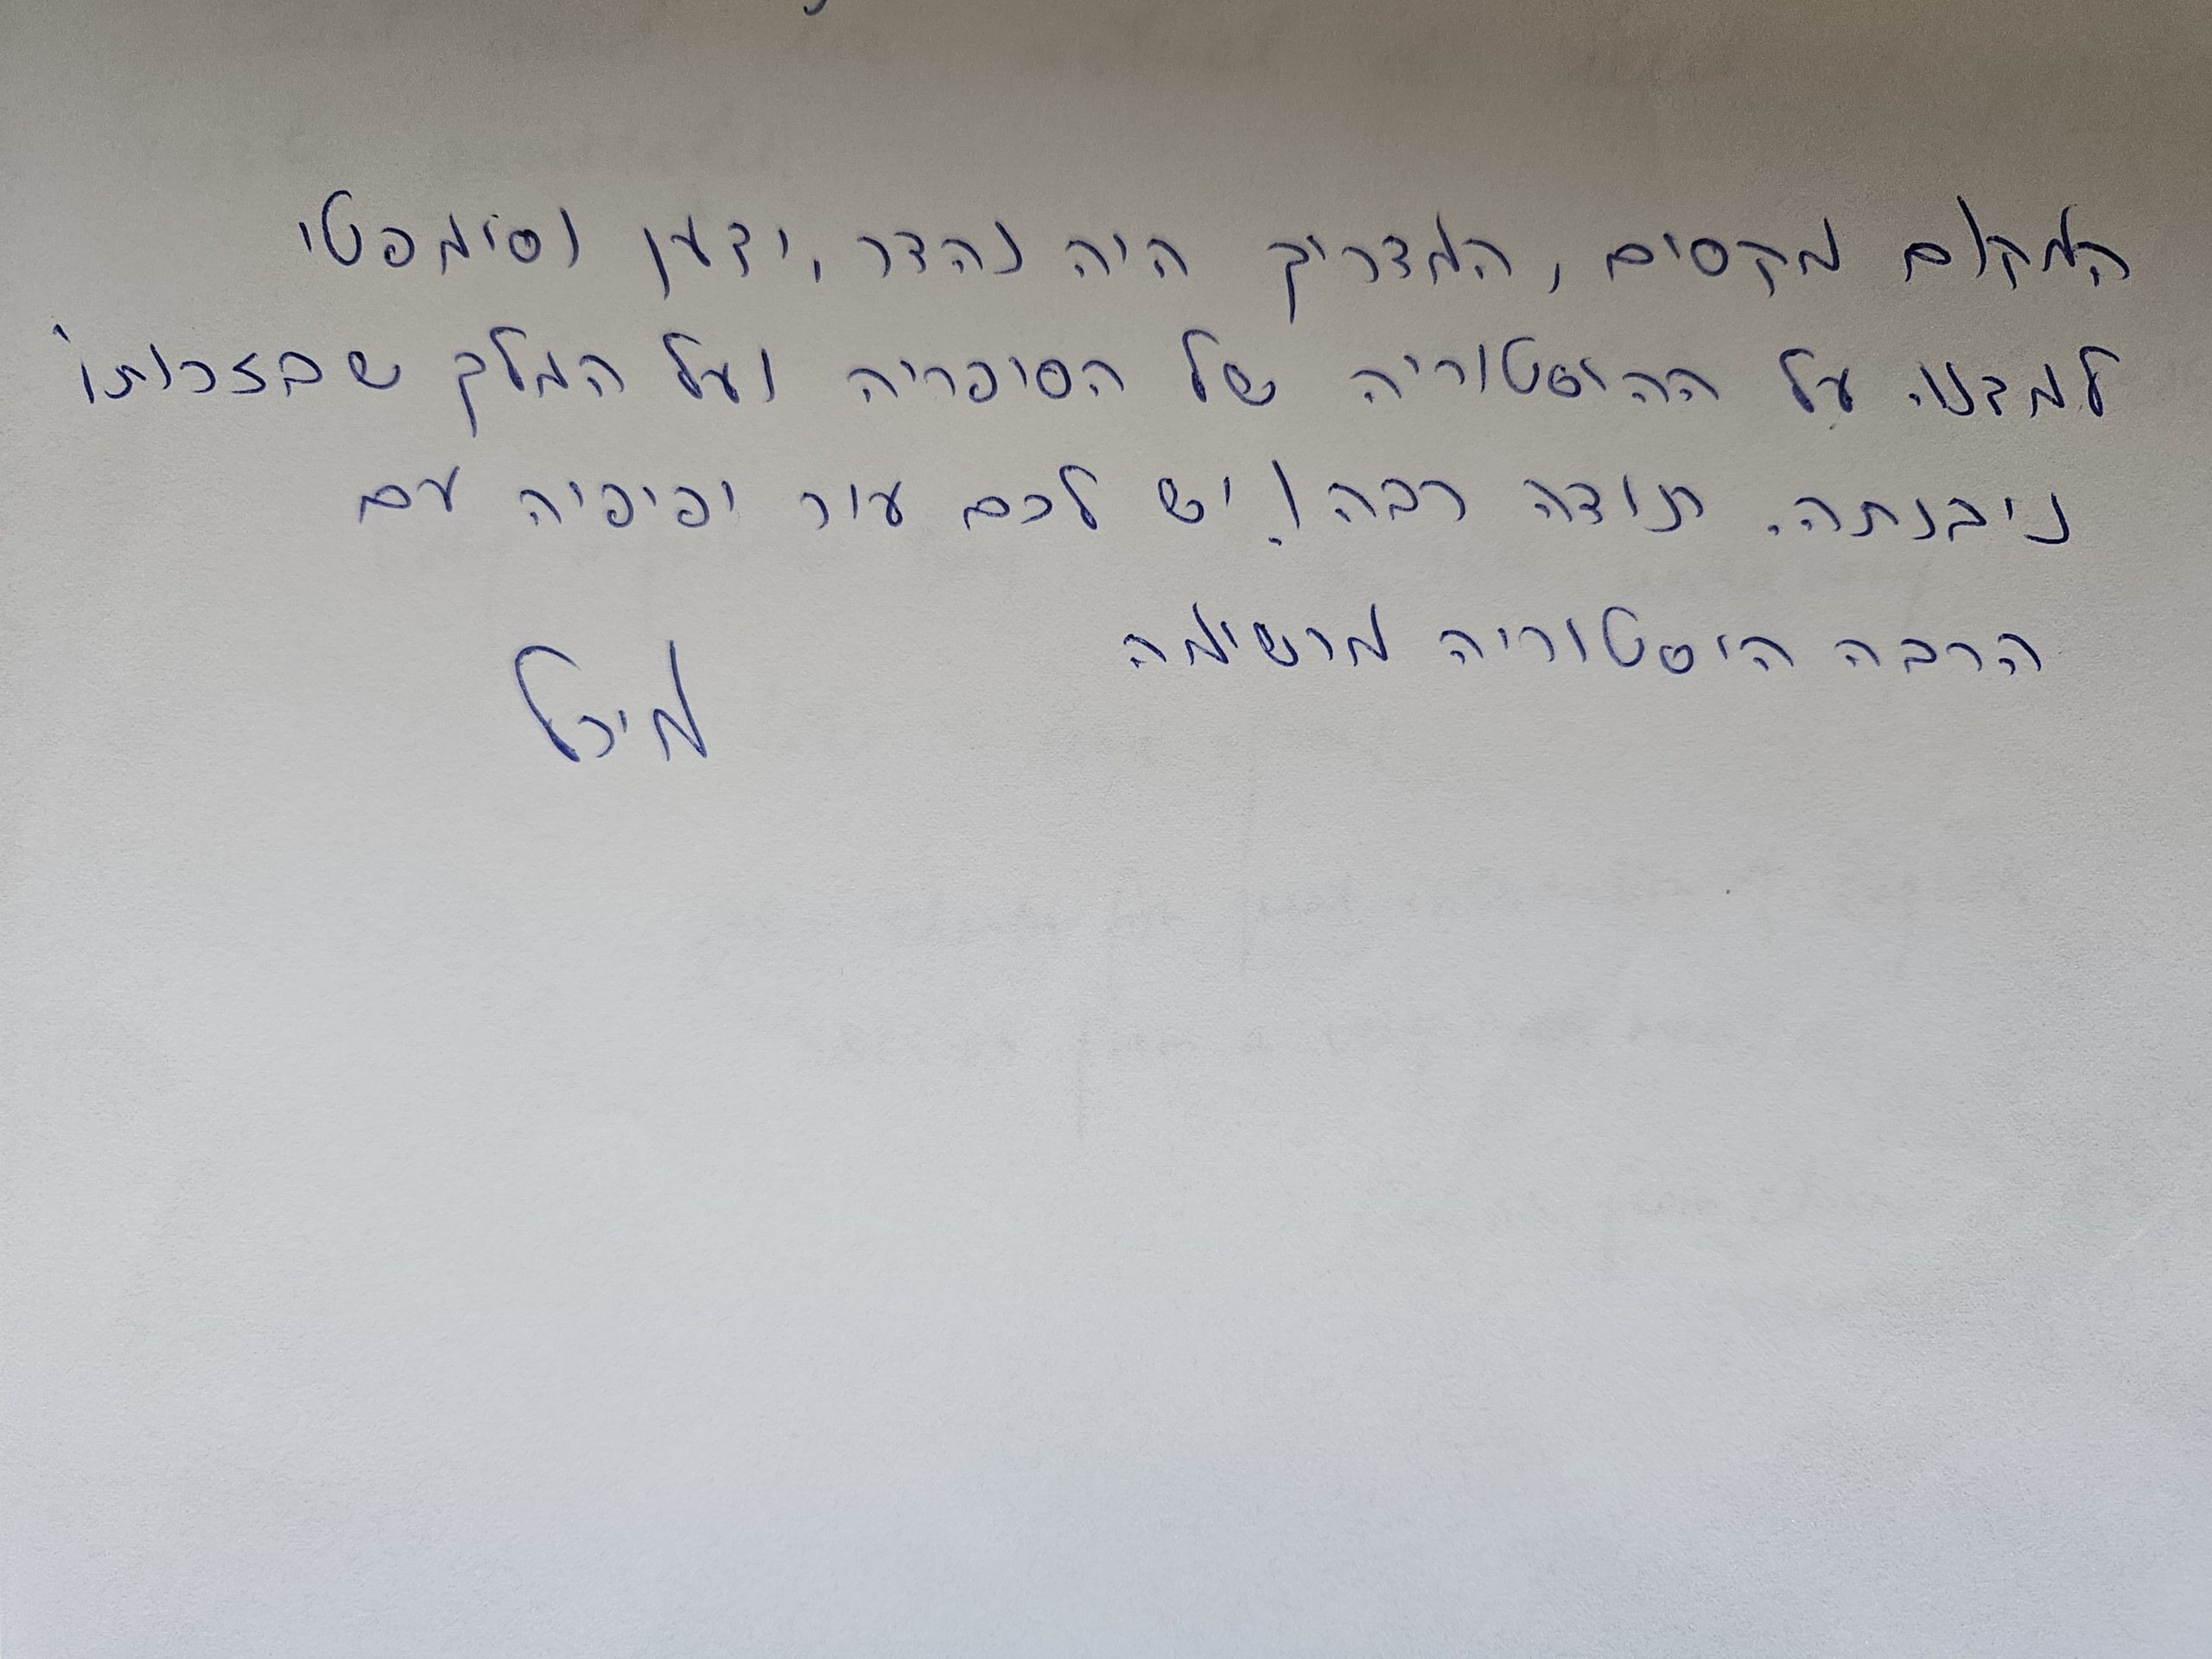 המקום מקסים, המדריך היה נהדר, ידען וסימפטי
למדנו על ההיסטוריה של הסיפריה ועל המלך שבזכותו
ניבנתה. תודה רבה! יש לכם עיר יפיפיה עם
הרבה היסטוריה מרשימה
מיכל